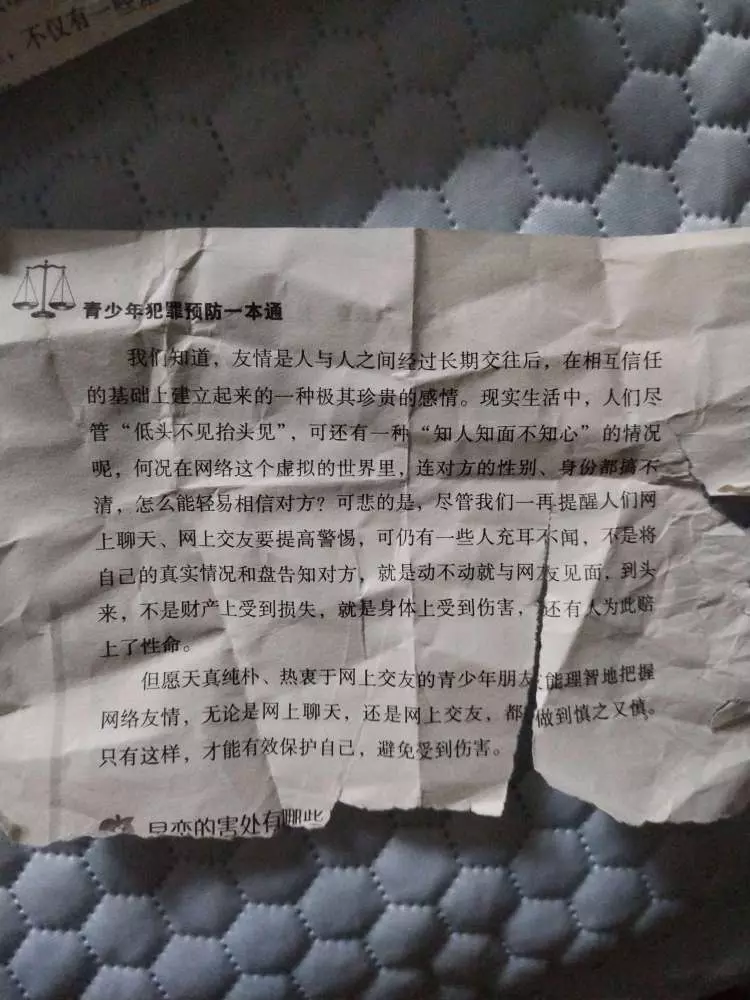 ，不仅有一
青少年犯罪预防一本通
我们知道，友情是人与人之间经过长期交往后，在相互信任
的基础上建立起来的一种极其珍贵的感情。现实生活中，人们尽
管“低头不见抬头见”，可还有一种“知人知面不知心”的情况
呢，何况在网络这个虚拟的世界里，连对方的性别、身份都搞不
清，怎么能轻易相信对方？可悲的是，尽管我们一再提醒人们网
上聊天、网上交友要提高警惕，可仍有一些人充耳不闻，不是将
自己的真实情况和盘告知对方，就是动不动就与网友见面，到头
来，不是财产上受到损失，就是身体上受到伤害，还有人为此赔
上了性命。
但愿天真纯朴、热衷于网上交友的青少年朋友能理智地把握
网络友情，无论是网上聊天，还是网上交友，都做到慎之又慎。
只有这样，才能有效保护自己，避免受到伤害。
早恋的害处有哪些